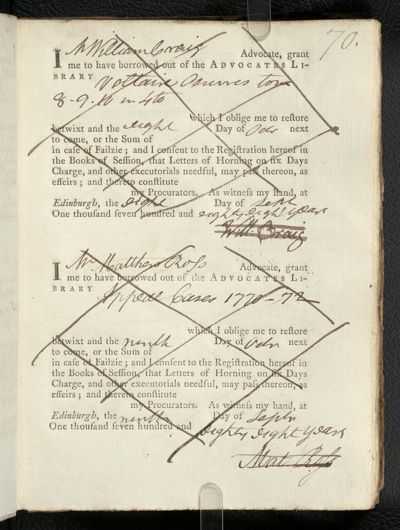 70.
I Mr William Craig Advocate, grant
me to have borrowed out of the ADVOCATES LI-
BRARY Voltaire Oeuvres tom
8. 9. 16 in 4to
which I oblige me to reſtore
betwixt and the eight Day of Octr next
to come, or the Sum of
in caſe of Failzie; and I conſent to the Regiſtration hereof in
the Books of Seſſion, that Letters of Horning on ſix Days
Charge, and other executorials needful, may paſs thereon, as
effeirs; and thereto conſtitute
my Procurators. As witneſs my hand, at
Edinburgh, the eight Day of Sept
One thouſand ſeven hundred and eighty eight years
Will: Craig
I Mr Matthew Roſs Advocate, grant
me to have borrowed out of the ADVOCATES LI-
BRARY Appeal Cases 1770-72
which I oblige me to reſtore
betwixt and the ninth Day of Octr next
to come, or the Sum of
in caſe of Failzie; and I conſent to the Regiſtration hereof in
the Books of Seſſion, that Letters of Horning on ſix Days
Charge, and other executorials needful, may paſs thereon, as
effeirs; and thereto conſtitute
my Procurators. As witneſs my hand, at
Edinburgh, the ninth Day of Septr
One thouſand ſeven hundred and eighty eight years
Mat. Roſs